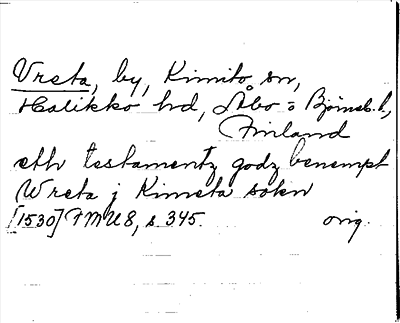 Vreta, by, Kimito sn,
Halikko hd, Åbo o Björneb. l.,
Finland
eth testamentz godz benempt
Wreta j Kimeta sokn
[1530] FMU 8, s. 345. orig.